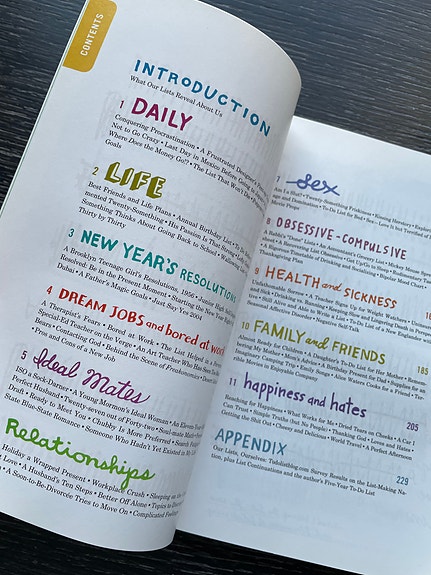 CONTENTS
INTRODUCTION
What Our Lists Reveal About Us
1 DAILY
Conquering Procrastination • A Frustrated Designer's
Not to Go Crazy • Last Day in Mexico Before Going
Where Does the Money Go!? • The List That Won't
Goals
2 LIFE
Best Friends and Life Plans • Annual Birthday List • To Be
mented Twenty-Something • His Passion Is That Song
Something Thinks About Going Back to School •
Thirty by Thirty
3 NEW YEAR'S RESOLUTIONS
A Brooklyn Teenage Girl's Resolutions, 1956 • Junior High
Resolved: Be in the Present Moment • Starting the New Year Right
Dubai • A Father's Magic Goals • Just Say Yes 2004
4 DREAM JOBS and bored at work
A Therapist's Fears • Bored at Work • The List Helped a
Special Ed Teacher on the Verge • An Art Teacher Who Has Seen
Bears • Contacting God • Behind the Scene of Freakonomics •
• Pros and Cons of a New Job
5 Ideal Mates
ISO a Sock-Darner • A Young Mormon's Ideal Woman • An Eleven
Perfect Husband • Twenty-seven out of Forty-two • Soul-mate
Draft • Ready to Meet You • Chubby Is More Preferred •
State Blue-State Romance • Someone Who Hadn't Yet Existed in
Relationships
Holiday a Wrapped Present • Workplace Crush • Sleeping
Love • A Husband's Ten Steps • Better Off Alone • Topics to
• A Soon-to-Be-Divorcée Tries to Move On • Complicated
7 sex
Am I a Slut? • Twenty-Something Frskiness • Kissing Heresy •
and Domination • To-Do List for Bed • Sex
Movie Props
8 OBSESSIVE-COMPULSIVE
A Rabbi's "Dame" Lists • An Accountant's Grocery List • Mickey Mouse
• A Recovering List Obsessive • Get Up/Go to Sleep •
• A Timetable of Drinking and Socializing • Bipolar Mood Chart •
Thanksgiving Plan
9 HEALTH and SICKNESS
Unfashionable Sweats • A Teacher Spices Up Her Weight Watchers •
and Sick • Drinking vs. Running • Keeping a Lingering Death in
tive • Still Alive and Able to Write a List • To-Do List of a New Englander
Seasonal Affective Disorder • Negative Self-Talk
10 FAMILY and FRIENDS
185
Almost Ready for Children • A Daughter's To-Do List for Her Mother •
bering My Mother • Mom's Advice • A Birthday Present for Dad •
Imaginary Camping Trip • Emily Songs • Alice Waters Cooks for a Friend •
tible Movies in Enjoyable Company
11 happiness and hates
205
Reaching for Happiness • What Works for Me • Dried Tears on Cheeks • A Car I
Can Trust • Simple Truths (but No People) • Thanking God • Loves and Hates •
Getting the Shit Out • Cheery and Delicious • World Travel • A Perfect Afternoon
APPENDIX
229
Our Lists, Ourselves: Todolistblog.com Survey Results on the List-Making Na-
tion, plus List Continuations and the author's Five-Year To-Do List